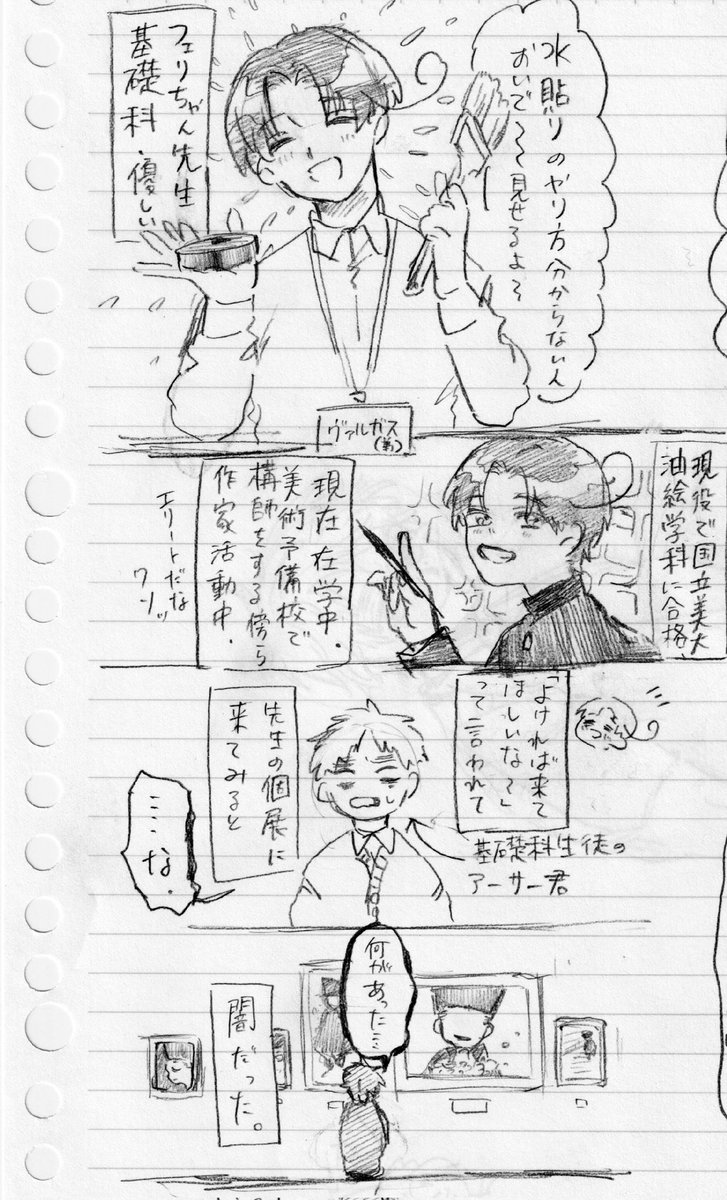 水貼りのやり方分からない人
おいで〜見せるよ〜
フェリちゃん先生
基礎科・優しい
ヴァルガス
(弟)
現役で国立美大
油絵学科に合格、
現在在学中.
美術予備校で
構師をする傍ら
作家活動中.
エリートだな
ワンッ
「よければ来て
ほしいな〜」
って言われて
先生の個展に
来てみると
基礎科生徒の
アーサー君
……な.
何が
あった……
闇だった。